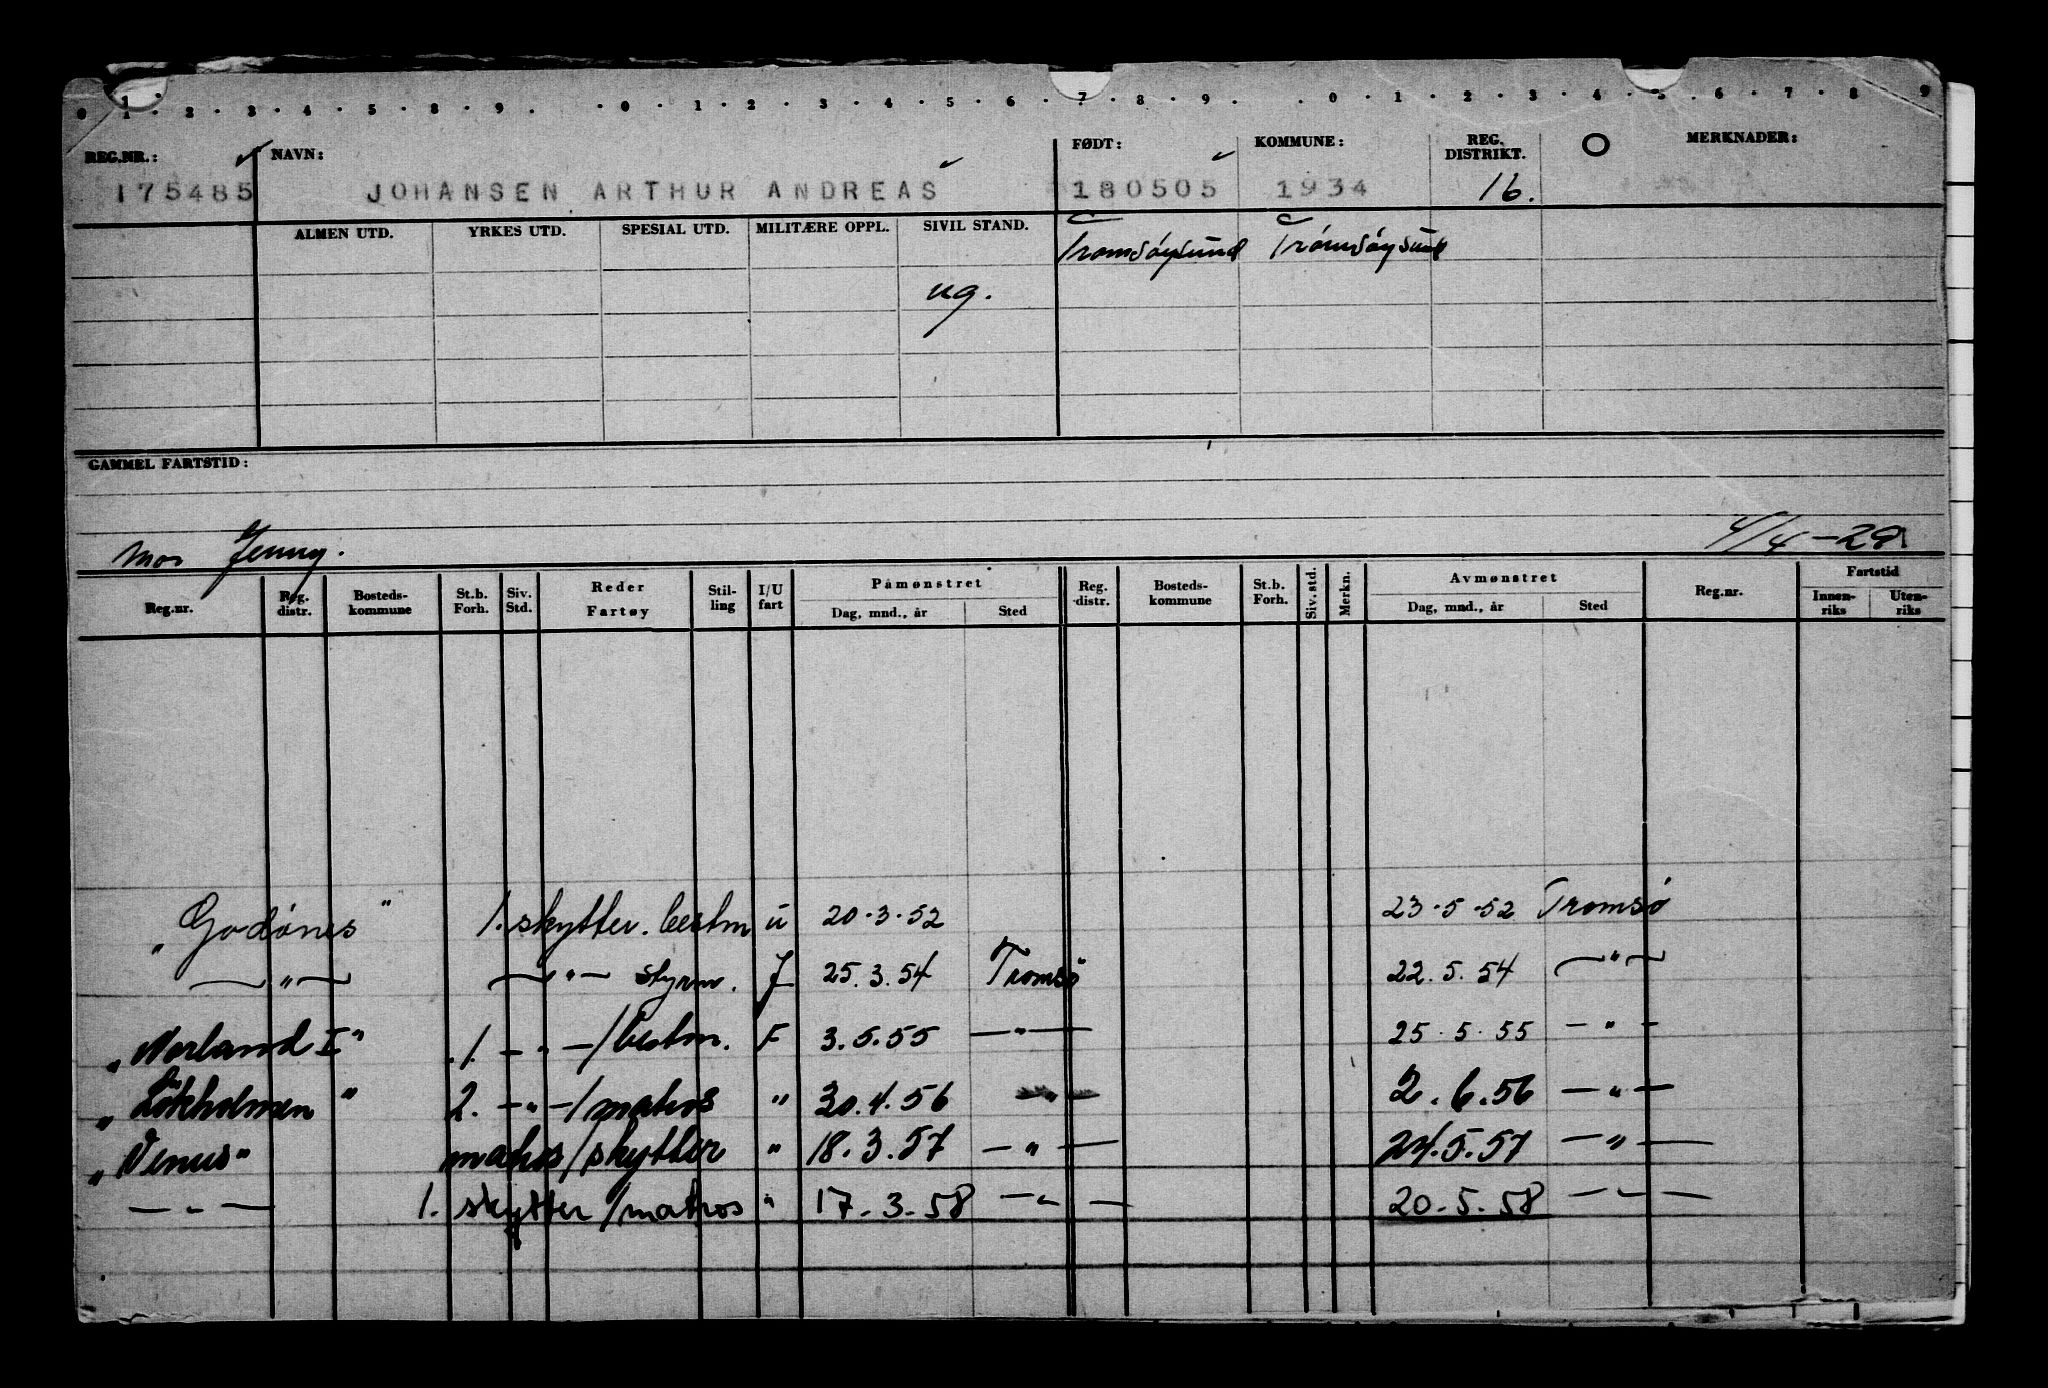 0 · 1 · 2 · 3 · 4 · 5 · 8 · 9 · · 0 · 1 · 2 · 3 · 4 · 5 · 6 · 7 · 8 · 9 · · 0 · 1 · 2 · 3 · 4 · 5 · 6 · 7 · 8 · 9
REG.NR.: NAVN: FØDT: KOMMUNE: REG. DISTRIKT. O MERKNADER:
175485 JOHANSEN ARTHUR ANDREAS 180505 1934 16.
ALMEN UTD. YRKES UTD. SPESIAL UTD. MILITÆRE OPPL. SIVIL STAND. Tromsöysund Tromsöysund
ug.
GAMMEL FARTSTID:
mor Jenny. 4/4-29
Reg.nr. Reg. distr. Bosteds-kommune St.b. Forh. Siv. Std. Reder Fartøy Stil-ling I/U fart Påmønstret Dag, mnd., år Sted Reg. distr. Bosteds-kommune St.b. Forh. Siv. std. Merkn. Avmønstret Dag, mnd., år Sted Reg.nr. Fartstid Innen-riks Uten-riks
„Godönes" 1. skytter. bestm u 20.3.52 23.5.52 Tromsö
—"— —"— styrm. F 25.3.54 Tromsö 22.5.54 —"—
„Norland I" 1. —"—/bestm. F 3.5.55 —"— 25.5.55 —"—
„Lökholmen" 2. —"—/matros " 30.4.56 —"— 2.6.56 —"—
„Venus" matros/skytter " 18.3.57 —"— 24.5.57 —"—
—"— 1. skytter/matros " 17.3.58 —"— 20.5.58 —"—